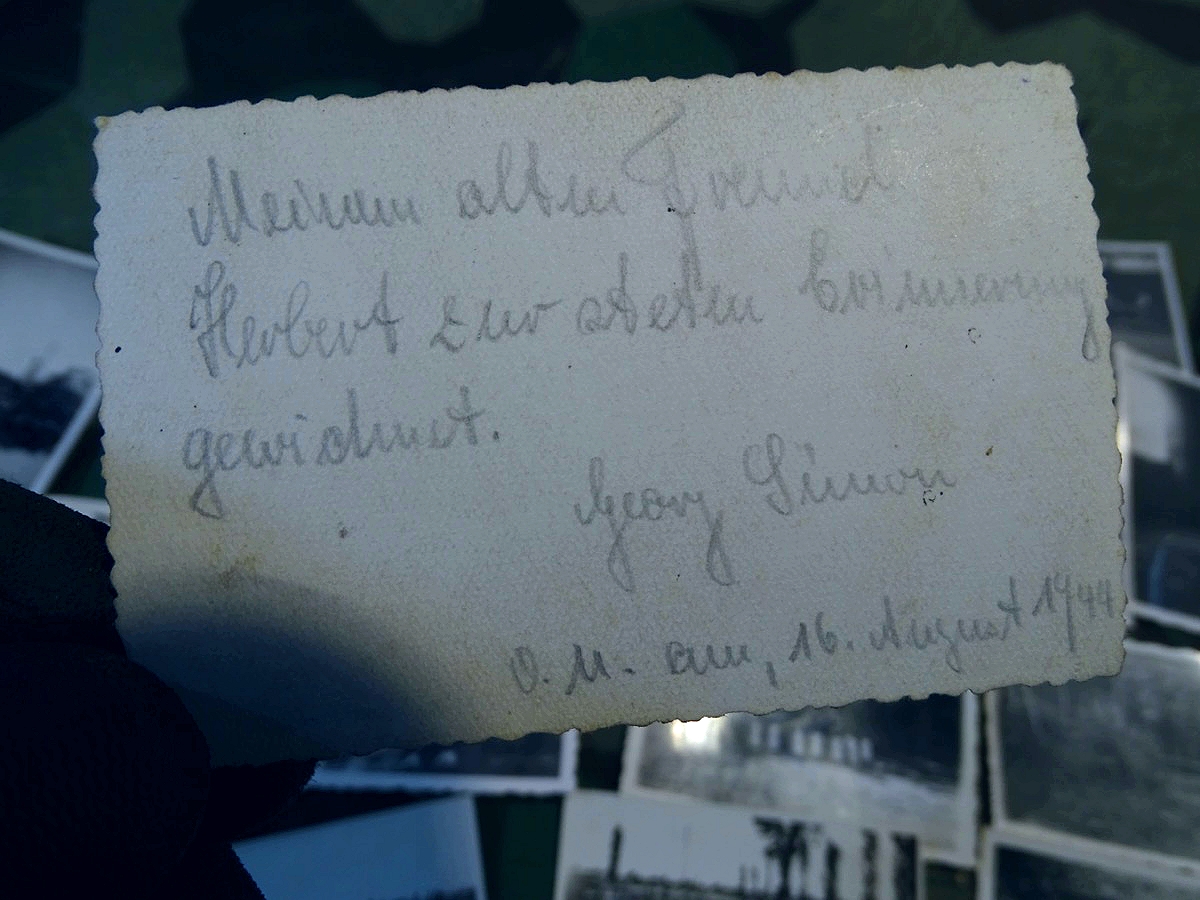 Meinem alten Freund
Herbert zur steten Erinnerung
gewidmet.
Georg Simon
O. U. am, 16. August 1944